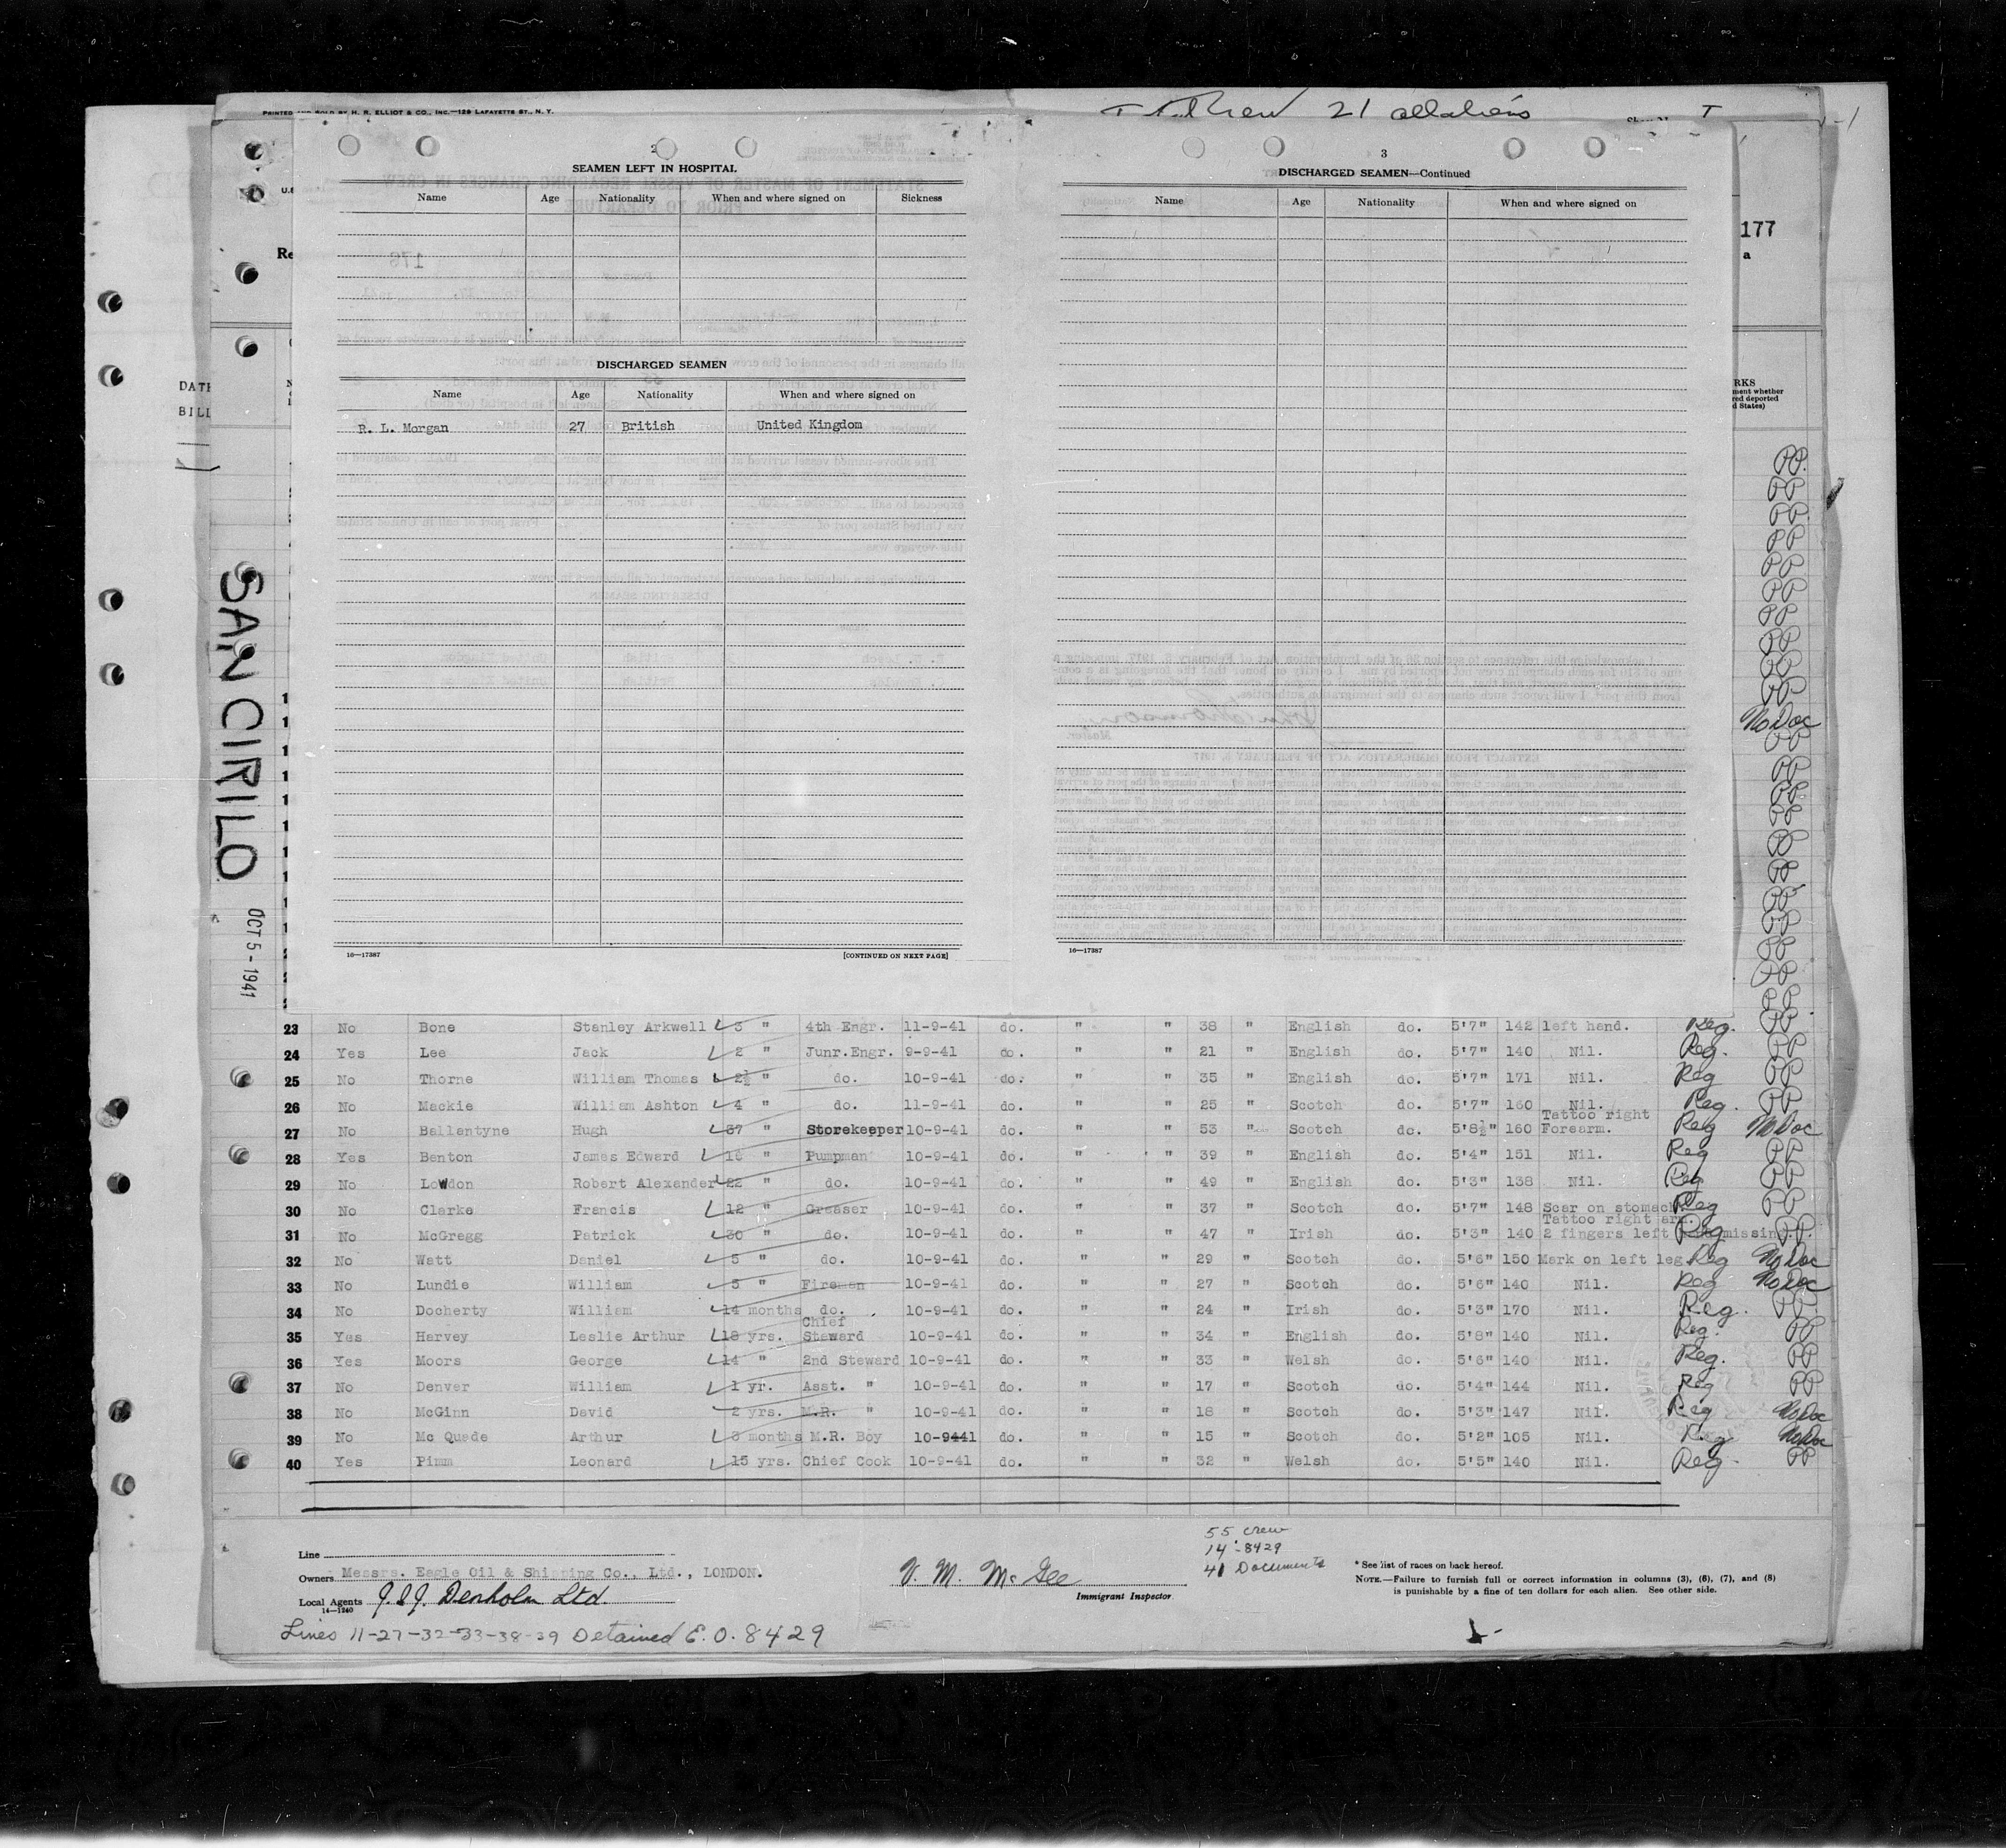 PRINTED AND SOLD BY H. R. ELLIOT & CO., INC.—129 LAFAYETTE ST., N. Y.
21
2
SEAMEN LEFT IN HOSPITAL
Name Age Nationality When and where signed on Sickness
DISCHARGED SEAMEN
Name Age Nationality When and where signed on
R. L. Morgan 27 British United Kingdom
16—17387 [CONTINUED ON NEXT PAGE]
3
DISCHARGED SEAMEN—Continued
Name Age Nationality When and where signed on
16—17387
177
a
Re
DATE
BILL
SAN CIRILO
OCT 5 - 1941
RKS
ment whether
red deported
d States)
PP.
PP
PP
PP
PP
PP
PP
PP
PP
PP
No Doc
PP
PP
PP
PP
PP
PP
PP
PP
PP
PP
PP
23 No Bone Stanley Arkwell 3 " 4th Engr. 11-9-41 do. " " 38 " English do. 5'7" 142 left hand. Reg. PP
24 Yes Lee Jack 2 " Junr.Engr. 9-9-41 do. " " 21 " English do. 5'7" 140 Nil. Reg. PP
25 No Thorne William Thomas 2½ " do. 10-9-41 do. " " 35 " English do. 5'7" 171 Nil. Reg PP
26 No Mackie William Ashton 4 " do. 11-9-41 do. " " 25 " Scotch do. 5'7" 160 Nil. Reg. PP
27 No Ballantyne Hugh 37 " Storekeeper 10-9-41 do. " " 53 " Scotch do. 5'8½" 160 Tattoo right Forearm. Reg No Doc
28 Yes Benton James Edward 16 " Pumpman 10-9-41 do. " " 39 " English do. 5'4" 151 Nil. Reg PP
29 No Lowdon Robert Alexander 22 " do. 10-9-41 do. " " 49 " English do. 5'3" 138 Nil. Reg PP
30 No Clarke Francis 12 " Greaser 10-9-41 do. " " 37 " Scotch do. 5'7" 148 Scar on stomach Reg PP
31 No McGregg Patrick 30 " do. 10-9-41 do. " " 47 " Irish do. 5'3" 140 Tattoo right arm. 2 fingers left missing. Reg P.P.
32 No Watt Daniel 5 " do. 10-9-41 do. " " 29 " Scotch do. 5'6" 150 Mark on left leg Reg No Doc
33 No Lundie William 5 " Fireman 10-9-41 do. " " 27 " Scotch do. 5'6" 140 Nil. Reg No Doc
34 No Docherty William 14 months do. 10-9-41 do. " " 24 " Irish do. 5'3" 170 Nil. Reg. PP
35 Yes Harvey Leslie Arthur 18 yrs. Chief Steward 10-9-41 do. " " 34 " English do. 5'8" 140 Nil. Reg. PP
36 Yes Moors George 14 " 2nd Steward 10-9-41 do. " " 33 " Welsh do. 5'6" 140 Nil. Reg. PP
37 No Denver William 1 yr. Asst. " 10-9-41 do. " " 17 " Scotch do. 5'4" 144 Nil. Reg PP
38 No McGinn David 2 yrs. M.R. " 10-9-41 do. " " 18 " Scotch do. 5'3" 147 Nil. Reg No Doc
39 No Mc Quade Arthur 3 months M.R. Boy 10-9441 do. " " 15 " Scotch do. 5'2" 105 Nil. Reg No Doc
40 Yes Pimm Leonard 15 yrs. Chief Cook 10-9-41 do. " " 32 " Welsh do. 5'5" 140 Nil. Reg. PP
55 crew
14 - 8429
41 Documents
Line
Owners Messrs. Eagle Oil & Shipping Co., Ltd., LONDON.
Local Agents J. & J. Denholm Ltd.
14—1240
V. M. McGee
Immigrant Inspector
* See list of races on back hereof.
NOTE.—Failure to furnish full or correct information in columns (3), (6), (7), and (8)
is punishable by a fine of ten dollars for each alien. See other side.
Lines 11-27-32-33-38-39 Detained E.O. 8429